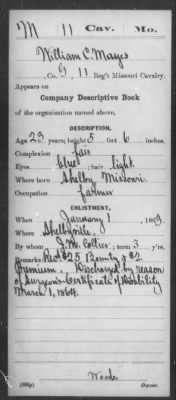 M 11 Cav. Mo.
William C. Mays
, Co. G, 11 Reg't Missouri Cavalry.
Appears on
Company Descriptive Book
of the organization named above.
DESCRIPTION.
Age 23 years; height 5 feet 6 inches.
Complexion fair
Eyes blue; hair light.
Where born Shelby, Missouri.
Occupation farmer
ENLISTMENT.
When January 1, 1863.
Where Shelbyville.
By whom J.M. Collier; term 3 y'rs.
Remarks: Rec'd $25 Bounty & $2
Premium. Discharged by reason
of Surgeon's Certificate of Disability
March 1, 1864.
Woods
Copyist.